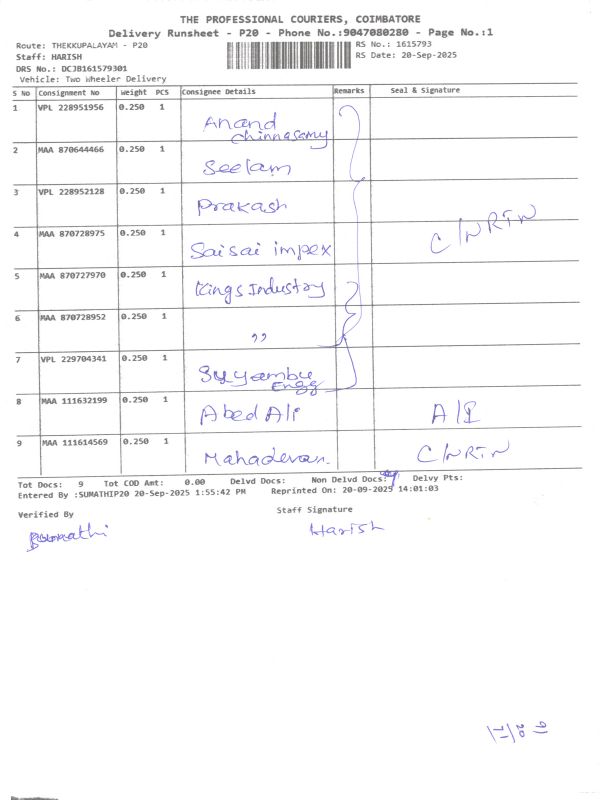 THE PROFESSIONAL COURIERS, COIMBATORE
Delivery Runsheet - P20 - Phone No.:9047080280 - Page No.:1
Route: THEKKUPALAYAM - P20 RS No.: 1615793
Staff: HARISH RS Date: 20-Sep-2025
DRS No.: DCJB161579301
Vehicle: Two Wheeler Delivery
S No Consignment No Weight PCS Consignee Details Remarks Seal & Signature
1 VPL 228951956 0.250 1 Anand
Chinnasamy
2 MAA 870644466 0.250 1 Seelam
3 VPL 228952128 0.250 1 Prakash
4 MAA 870728975 0.250 1 Saisai impex C/NRTN
5 MAA 870727970 0.250 1 Kings Industry
6 MAA 870728952 0.250 1 ,,
7 VPL 229704341 0.250 1 Suyambu
Engg
8 MAA 111632199 0.250 1 Abed Ali
9 MAA 111614569 0.250 1 Mahadevan. C/NRTN
Tot Docs: 9 Tot COD Amt: 0.00 Delvd Docs: Non Delvd Docs: Delvy Pts:
Entered By :SUMATHIP20 20-Sep-2025 1:55:42 PM Reprinted On: 20-09-2025 14:01:03
Verified By Staff Signature
Harish